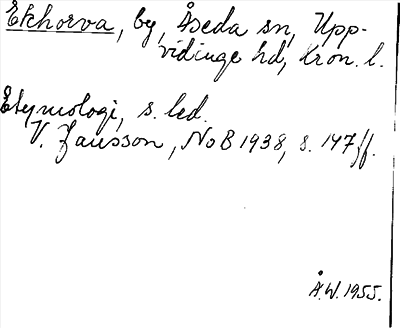 Ekhorva, by, Åseda sn, Upp-
vidinge hd, Kron. l.
Etymologi, s. led.
V. Jansson, NoB 1938, s. 147 ff.
Å.W. 1955.